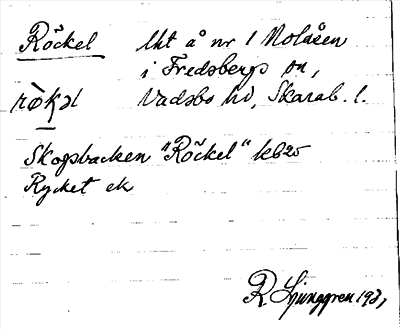 Röckel lht å nr 1 Molåsen
i Fredsbergs sn,
røkəl Vadsbo hd, Skarab. l.
Skogsbacken "Röckel" kb25
Rycket ek
R. Ljunggren 193